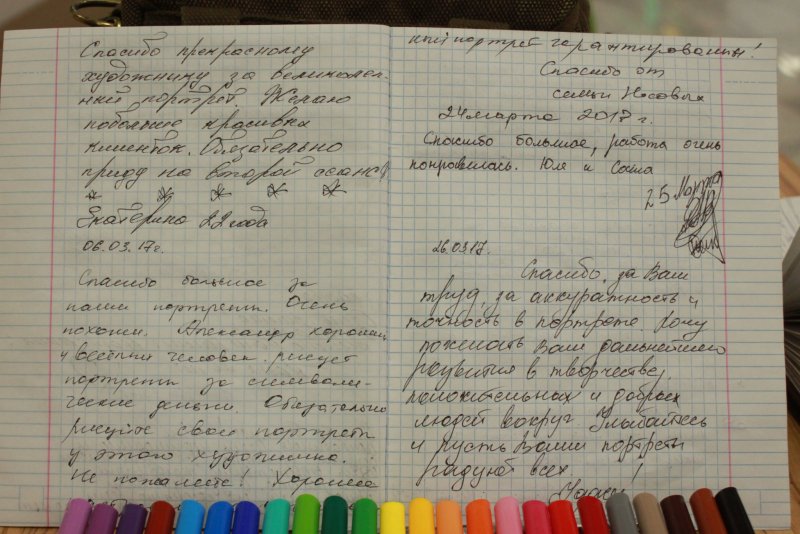 Спасибо прекрасному
художнику за великолеп-
ный портрет. Желаю
побольше красивых
клиенток. Обязательно
приду на второй сеанс!)
Екатерина 22 года
06.03.17г.
Спасибо большое за
наши портреты. Очень
похожи. Александр хороший
и весёлый человек. рисует
портреты за символи-
ческие деньги. Обязательно
рисуйте свои портреты
у этого художника.
Не пожалеете! Хорошее
ный портрет гарантированы!
Спасибо от
семьи Носовых
24 марта 2017 г.
Спасибо большое, работа очень
понравилась. Юля и Саша
25 Марта
26.03.17.
Спасибо, за Ваш
труд, за аккуратность и
точность в портрете. Хочу
пожелать Вам дальнейшего
развития в творчестве,
положительных и добрых
людей вокруг. Улыбайтесь
и пусть Ваши портреты
радуют всех !